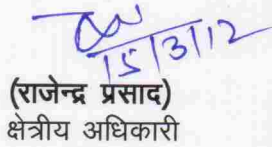 15/3/12
(राजेन्द्र प्रसाद)
क्षेत्रीय अधिकारी